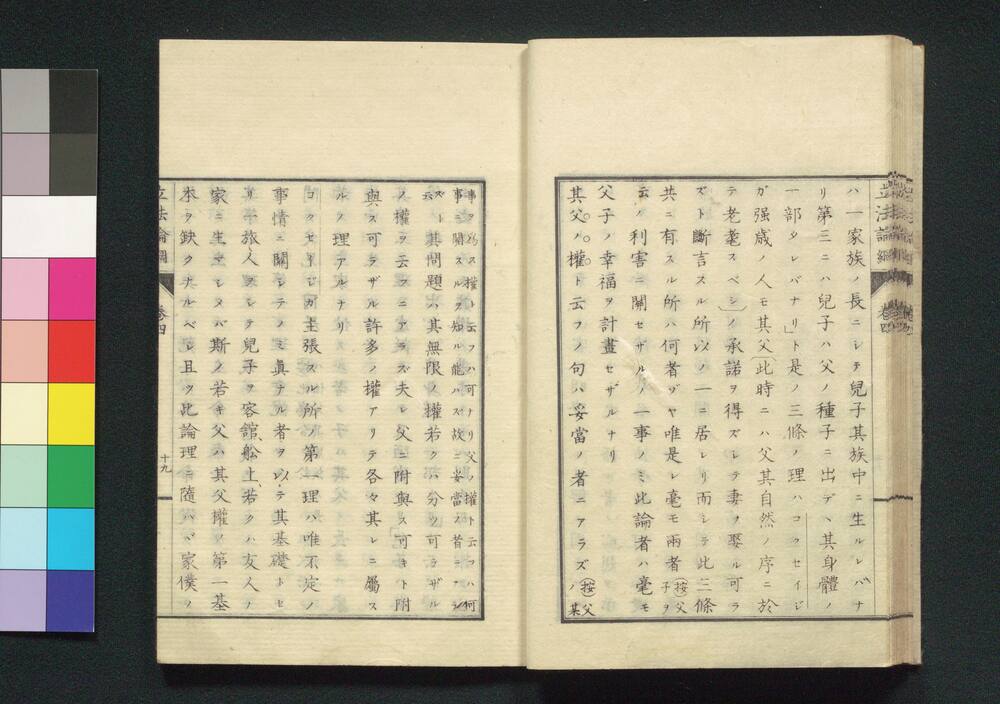 ハ一家族ノ長ニシテ兒子其族中ニ生ルレバナ
リ第三ニハ兒子ハ父ノ種子ニ出デヽ其身體ノ
一部タレバナリ」ト是ノ三條ノ理ハコクセイジ
ガ强歳ノ人モ其父(此時ニハ父其自然ノ序ニ於
テ老耄スベシ)ノ承諾ヲ得ズシテ妻ヲ娶ル可ラ
ズト斷言スル所以ノ一ニ居レリ而シテ此三條
共ニ有スル所ハ何者ゾヤ唯是レ毫モ兩者(按父子ヲ
云フ)利害ニ關セザルノ一事ノミ此論者ハ毫モ
父子ノ幸福ヲ計畫セザルナリ
其父。ノ。權。ト云フノ句ハ妥當ノ者ニアラズ(按父ノ某
事ヲ爲ス權ト云フハ可ナリ父ノ權ト云フハ何
事ニ關スルヲ知ル能ハズ故ニ妥當ノ者ニアラズト云)
其問題ハ其無限ノ權若クハ分ツ可ラザル
ノ權ヲ云フニアラズ夫レ父ニ附與ス可キト附
與ス可ラザル許多ノ權アリテ各々其レニ屬ス
ルノ理アルナリ
コクセイジガ主張スル所ノ第一理ハ唯不定ノ
事情ニ關シテノミ眞ナル者ヲ以テ其基礎トセ
リ一旅人ヲシテ兒子ヲ客館、船上、若クハ友人ノ
家ニ生マシメバ斯ノ若キ父ハ其父權ノ第一基
本ヲ缺クナルベシ且ツ此論理ニ隨ハバ家僕ノ
立法論綱
卷四
十九
立法論綱
卷四